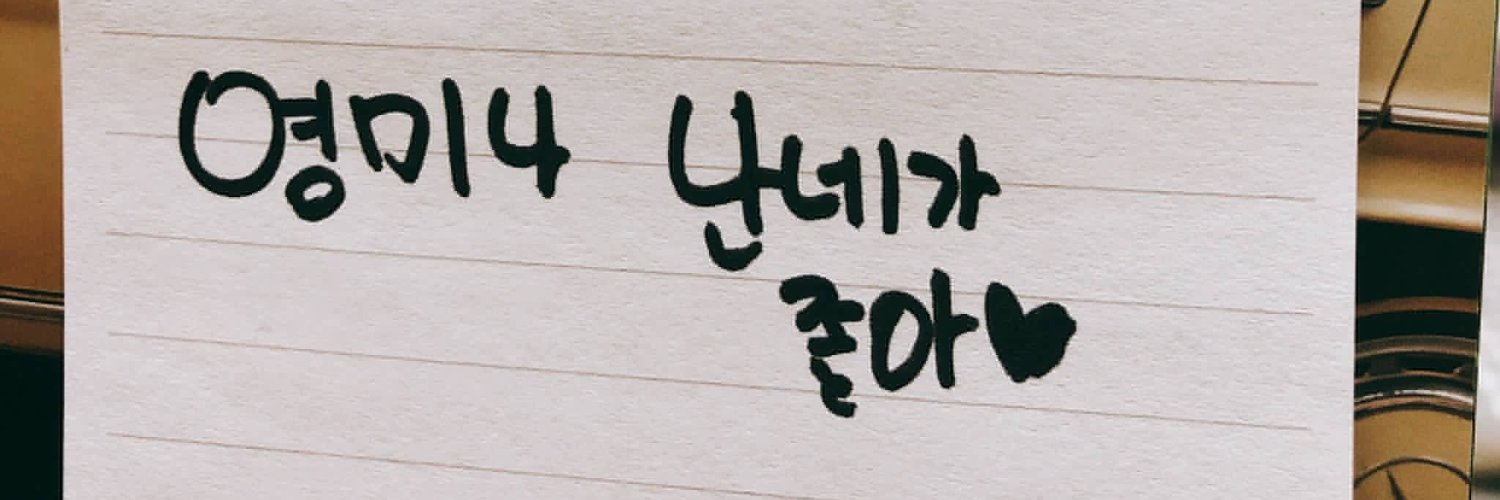 영미나 난네가
좋아♥